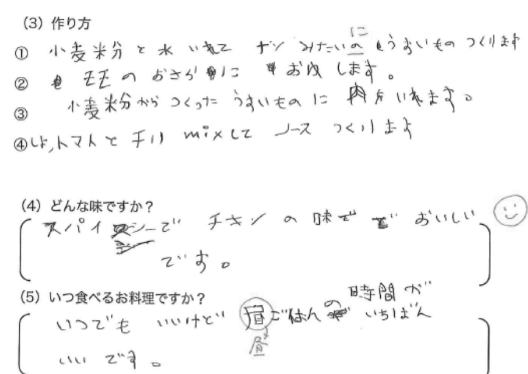 (3) 作り方
① 小麦粉と水 いれて ナン みたいのにもうすいもの つくります
② の おさらに お肉 します。
③ 小麦粉から つくった うすいものに 肉を いれます。
④ トマトと チリ mixして ソース つくります
(4) どんな味ですか?
スパイシーで チキン の 味で おいしい
です。
(5) いつ食べるお料理ですか?
いつでも いいけど 昼ごはんの時間が いちばん
昼
いい です。